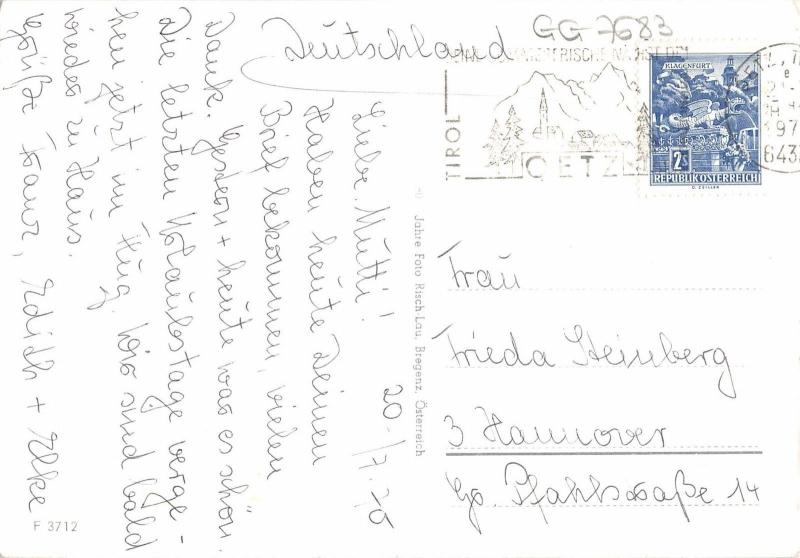 GG 7683
Deutschland
TIROL
OETZ
KLAGENFURT
2s
REPUBLIK ÖSTERREICH
643
20.7.70
Liebe Mutti!
Haben heute Deinen
Brief bekommen, vielen
Dank. Gestern + heute war es schön.
Die letzten Urlaubstage verge-
hen jetzt im Flug. Wir sind bald
wieder zu Haus.
Grüße Franz, Edith + Elke
Jahre Foto Risch-Lau, Bregenz, Österreich
Frau
Frieda Steinberg
3 Hannover
Gr. Pfahlstraße 14
F 3712